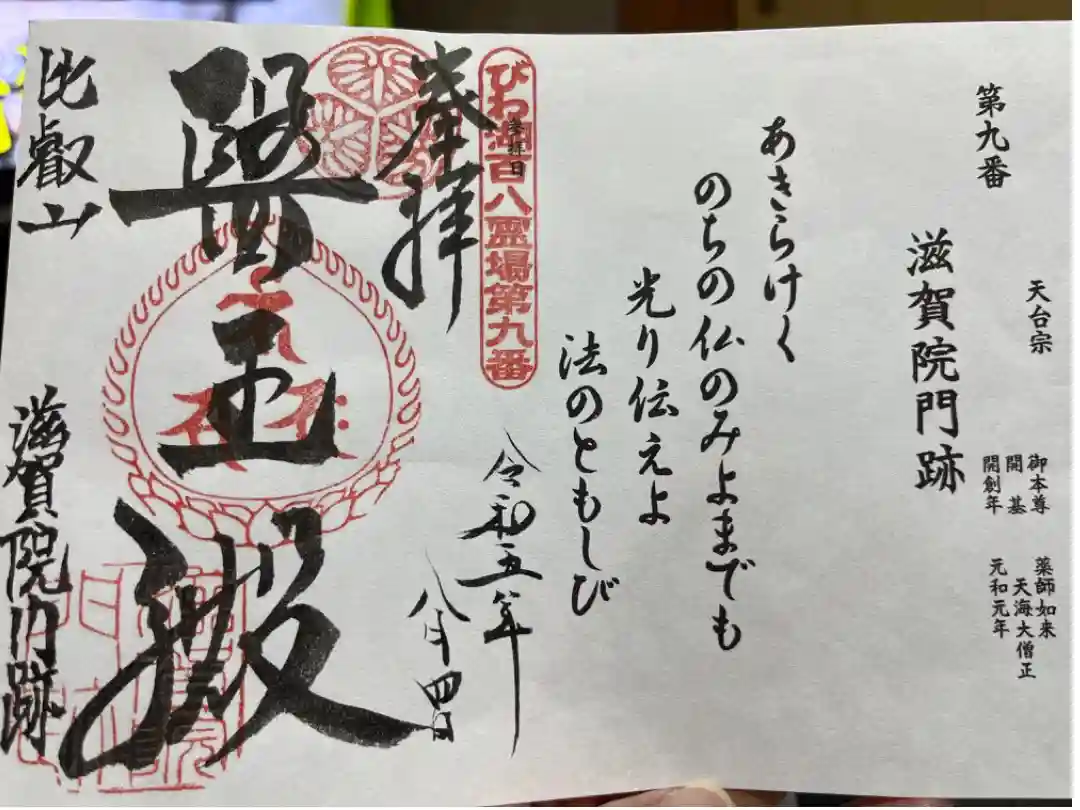 第九番
天台宗
滋賀院門跡
御本尊 薬師如来
開基 天海大僧正
開創年 元和元年
あきらけく
のちの仏のみよまでも
光り伝えよ
法のともしび
びわ湖百八霊場第九番
参拝日
令和五年
八月四日
奉拝
醫王殿
比叡山
滋賀院門跡